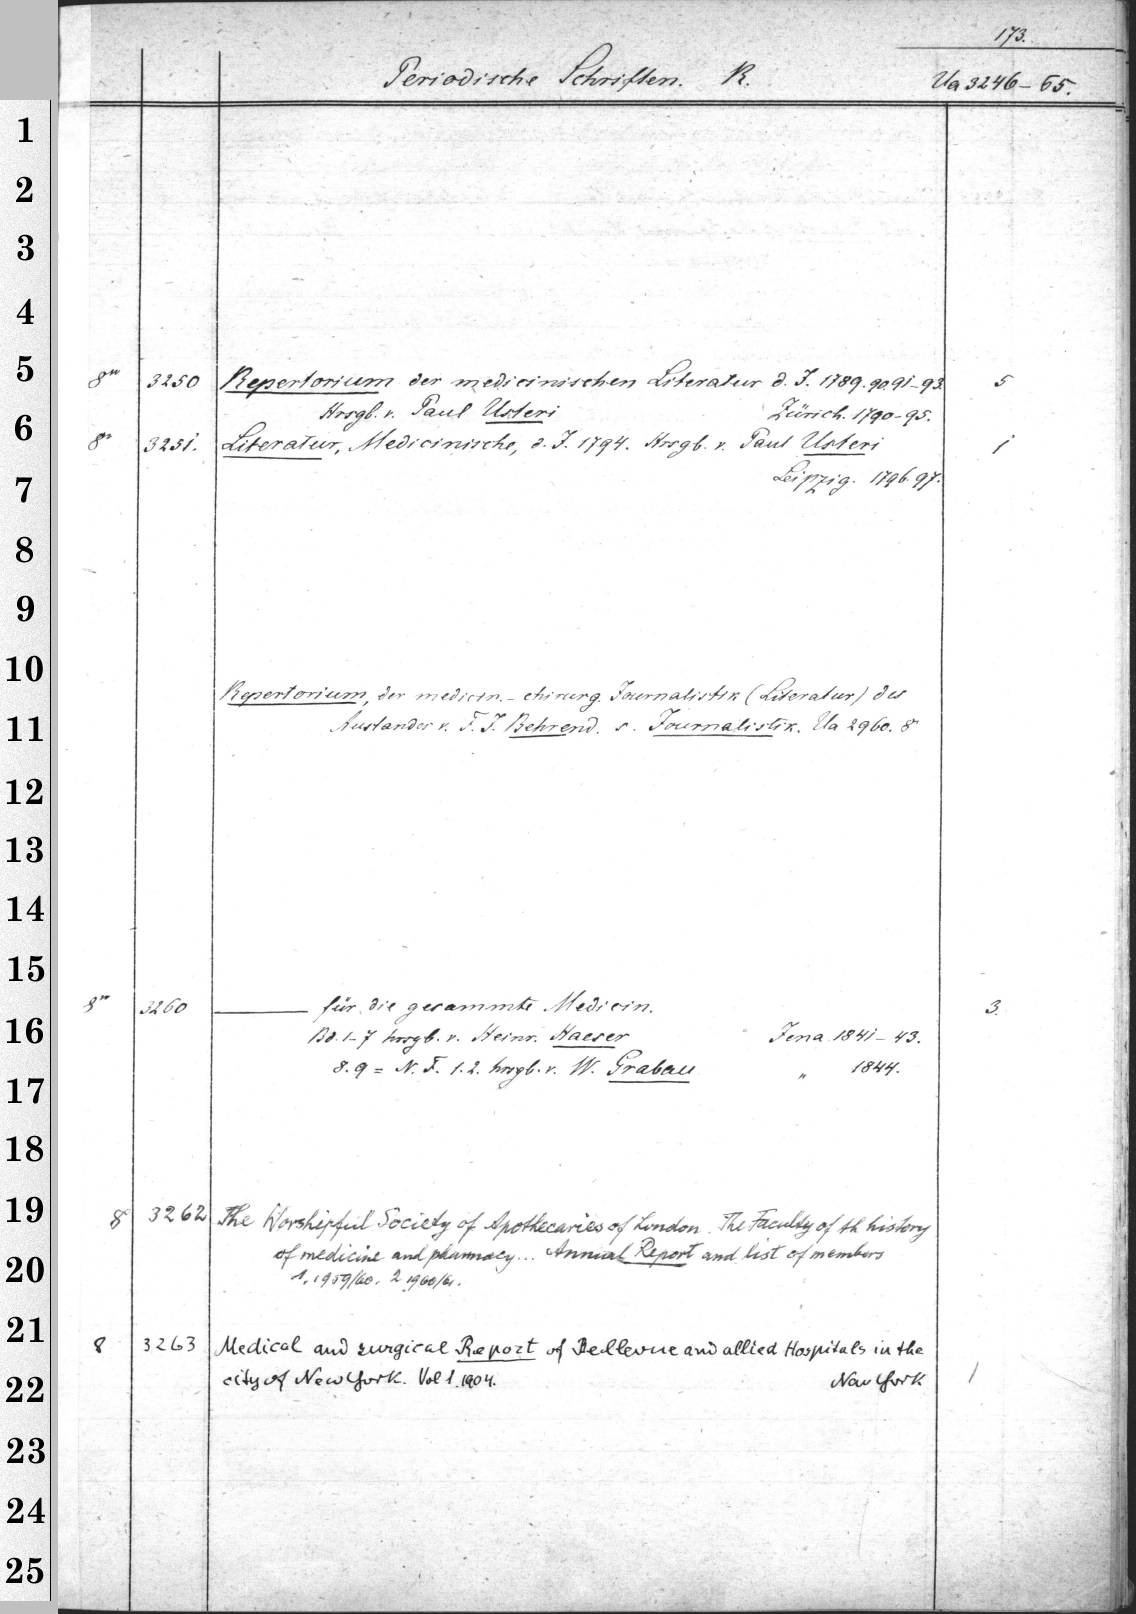 173.
Periodische Schriften. R. Ua 3246–65.
1
2
3
4
5 8° 3250 Repertorium der medicinischen Literatur d. J. 1789. 90. 91–93. 5
Hrsgb. v. Paul Usteri Zürich. 1790–95.
6 8° 3251. Literatur, Medicinische, d. J. 1794. Hrsgb. v. Paul Usteri 1
7 Leipzig. 1796. 97.
8
9
10 Repertorium, der medicin.- chirurg. Journalistik (Literatur) des
11 Auslandes v. F. J. Behrend. s. Journalistik. Ua 2960. 8°
12
13
14
15
8° 3260 ——— für die gesammte Medicin. 3.
16 Bd. 1–7 hrsgb. v. Heinr. Haeser Jena 1841–43.
17 8. 9 = N. F. 1. 2. hrsgb. v. W. Grabau „ 1844.
18
19 8 3262 The Worshipful Society of Apothecaries of London. The Faculty of th history
20 of medicine and pharmacy... Annual Report and list of members
1. 1959/60. 2 1960/61.
21 8 3263 Medical and surgical Report of Bellevue and allied Hospitals in the
22 city of New York. Vol 1. 1904. New York 1
23
24
25